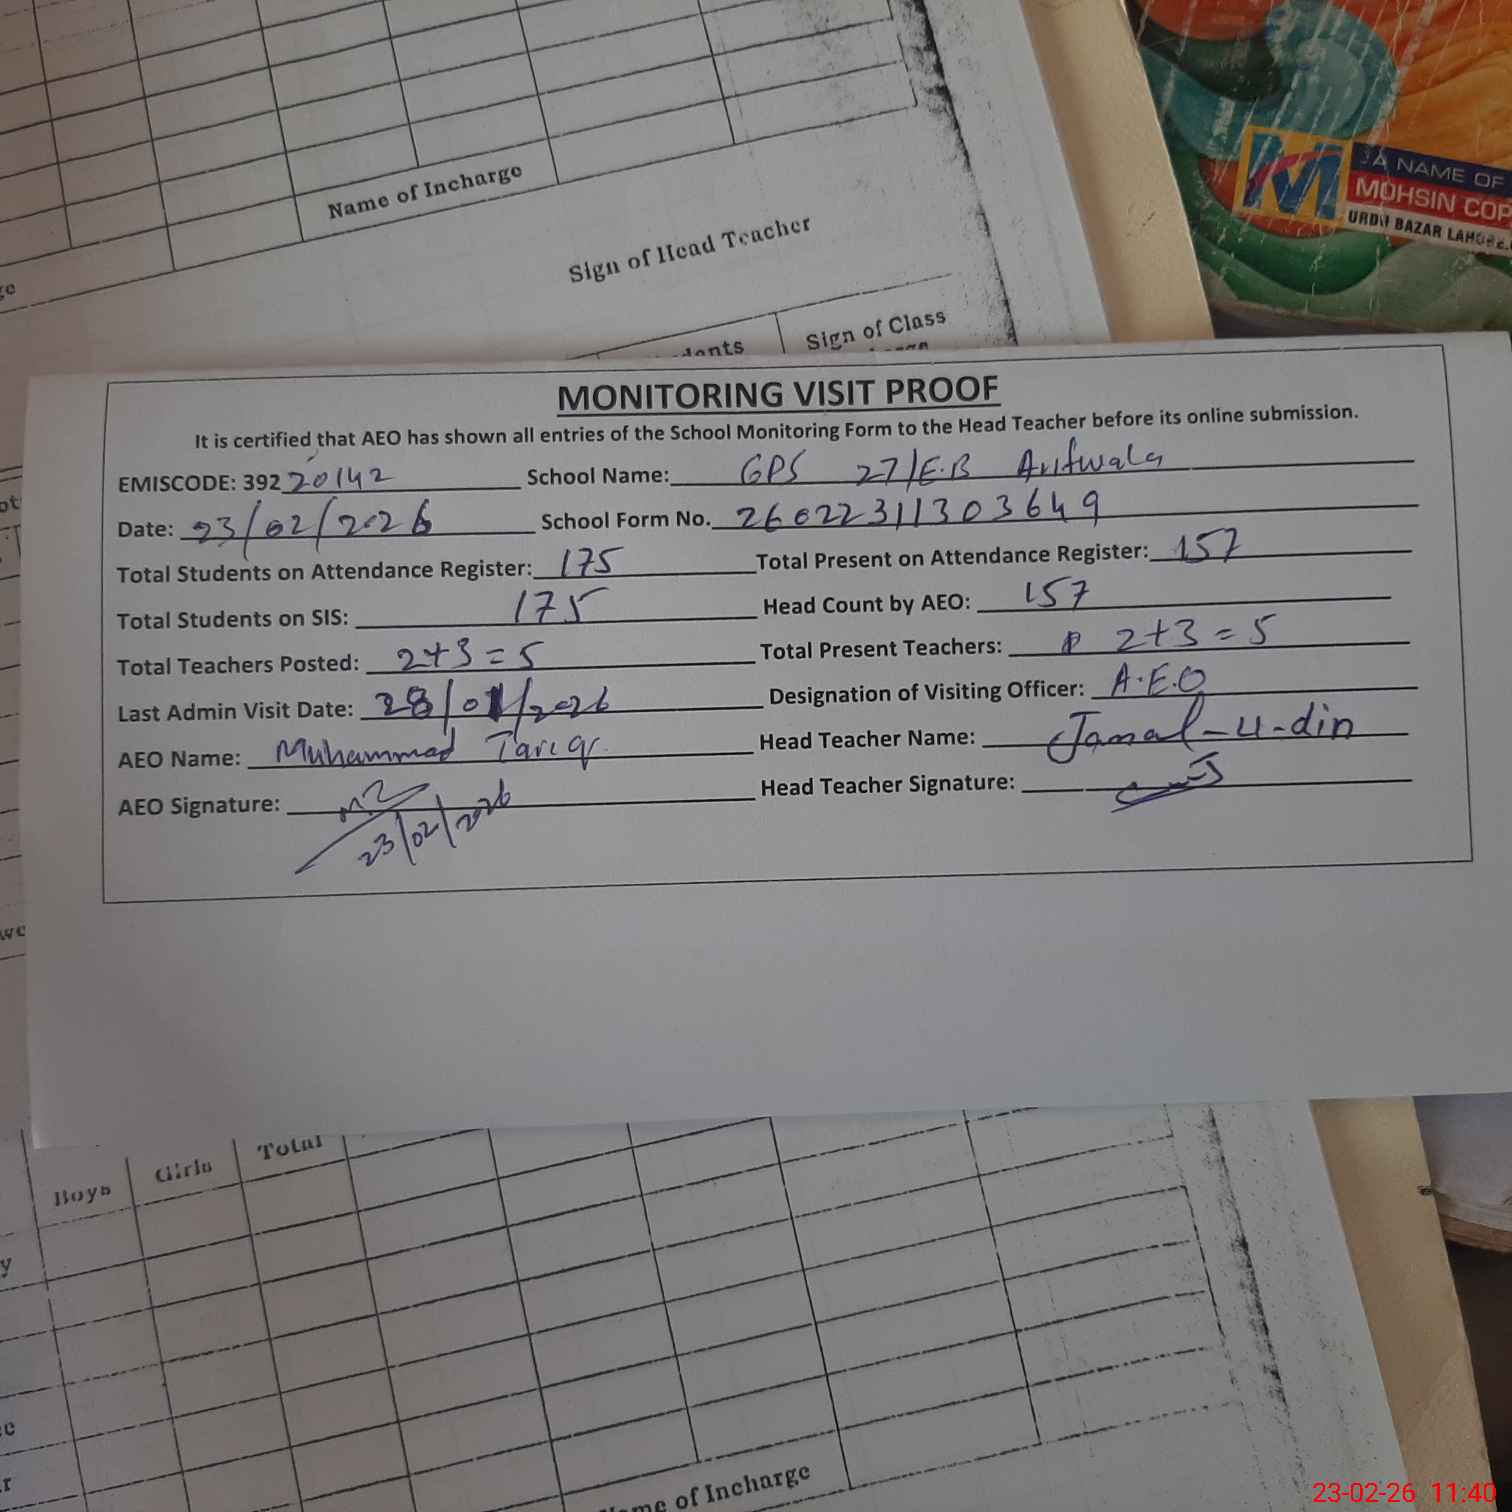 Name of Incharge
Sign of Head Teacher
Sign of Class
JA NAME OF
MOHSIN COP
URDU BAZAR LAHORE.
MONITORING VISIT PROOF
It is certified that AEO has shown all entries of the School Monitoring Form to the Head Teacher before its online submission.
EMISCODE: 392 20142 School Name: GPS 27/E.B Arifwala
Date: 23/02/2026 School Form No. 26022311303649
Total Students on Attendance Register: 175 Total Present on Attendance Register: 157
Total Students on SIS: 175 Head Count by AEO: 157
Total Teachers Posted: 2+3=5 Total Present Teachers: 2+3=5
Last Admin Visit Date: 28/01/2026 Designation of Visiting Officer: A.E.O
AEO Name: Muhammad Tariq Head Teacher Name: Jamal-u-din
AEO Signature: Head Teacher Signature:
23/02/2026
Boys Girls Total
me of Incharge
23-02-26 11:40